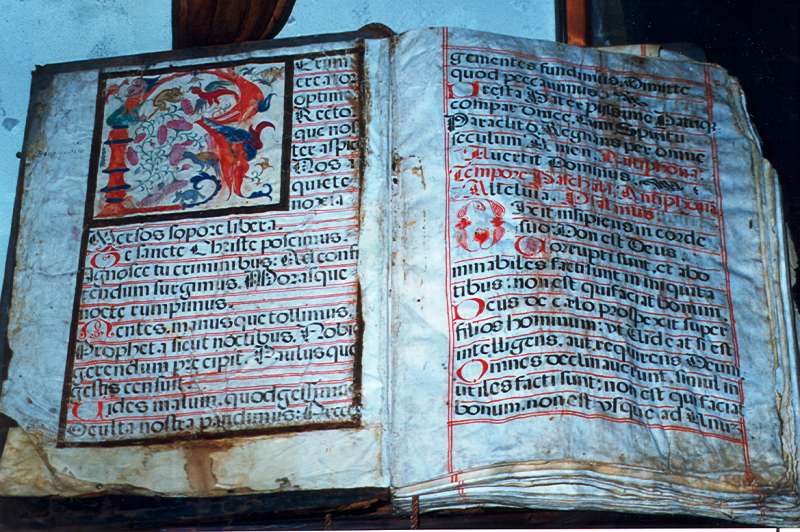 R erum
creator
optime
Recto
que nos
ter aspice
Nos a
quiete
noxia
Mersos sopore libera.
Te sancte Christe poscimus.
Ignosce tu criminibus: Ad confi
tendum surgimus. Morasque
nocte rumpimus.
Mentes, manusque tollimus,
Propheta sicut noctibus. Nobis
gerendum præcipit. Paulusque
gestis censuit.
Vides malum, quod gessimus
Oculta nostra pandimus: Preces
gementes fundimus, Dimitte
quod peccavimus.
Præsta Pater piissime Patriq;
compar Unice, Cum Spiritu
Paraclito, Regnans per omne
sæculum. Amen. Antiphona
Avertit Dominus.
Tempore Paschali, Antiphona
Alleluia. Psalmus.
Dixit insipiens in corde
suo: Non est Deus.
Corrupti sunt, et abo
minabiles facti sunt in iniquita
tibus: non est qui faciat bonum.
Deus de cælo prospexit super
filios hominum: ut videat si est
intelligens, aut requirens Deum
Omnes declinaverunt, simul in
utiles facti sunt: non est qui faciat
bonum, non est usque ad unu